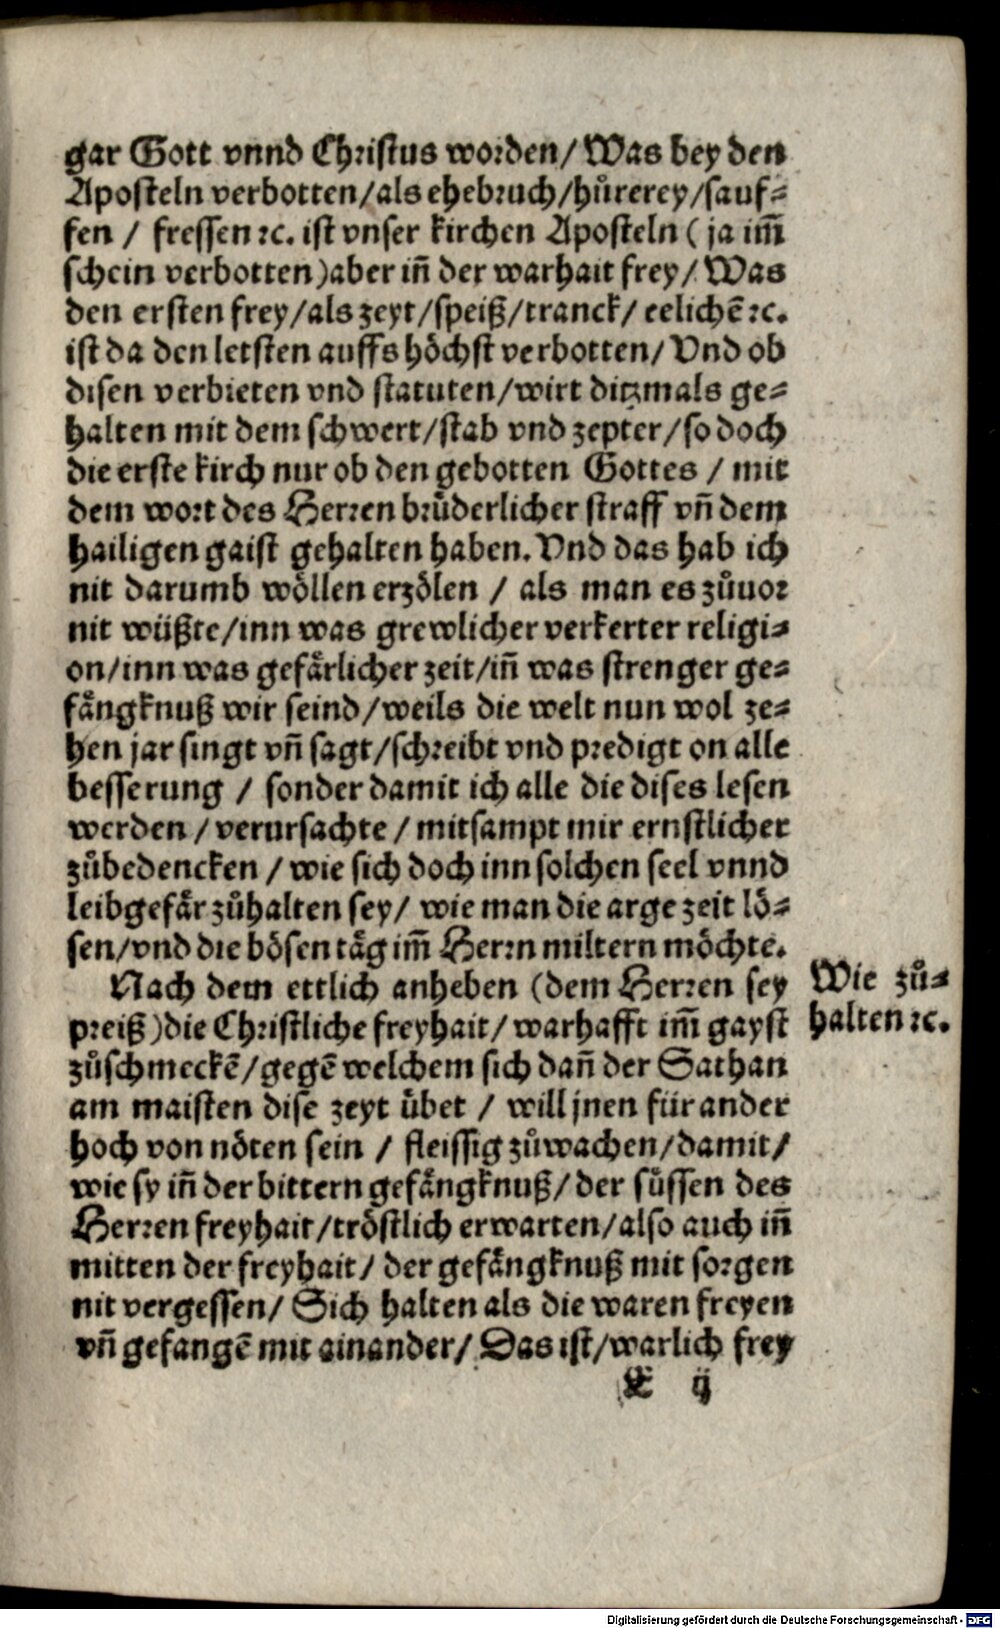 gar Gott vnnd Christus worden/ Was bey den
Aposteln verbotten/als ehebruch/hůrerey/sauf⸗
fen / fressen ꝛc. ist vnser kirchen Aposteln ( ja im̃
schein verbotten)aber iñ der warhait frey/ Was
den ersten frey/als zeyt/speiß/tranck/ eelichē ꝛc.
ist da den letsten auffs höchst verbotten/ Vnd ob
disen verbieten vnd statuten/wirt ditzmals ge⸗
halten mit dem schwert/stab vnd zepter/so doch
die erste kirch nur ob den gebotten Gottes / mit
dem wort des Herren brüderlicher straff vñ dem
hailigen gaist gehalten haben. Vnd das hab ich
nit darumb wöllen erzölen / als man es zůuor
nit wüßte/inn was grewlicher verkerter religi⸗
on/inn was gefärlicher zeit/iñ was strenger ge⸗
fängknuß wir seind/weils die welt nun wol ze⸗
hen jar singt vñ sagt/schreibt vnd predigt on alle
besserung / sonder damit ich alle die dises lesen
werden / verursachte / mitsampt mir ernstlicher
zůbedencken / wie sich doch inn solchen seel vnnd
leibgefär zůhalten sey/ wie man die arge zeit lö⸗
sen/vnd die bösen täg im̃ Herrn miltern möchte.
Nach dem ettlich anheben (dem Herren sey
preiß)die Christliche freyhait/ warhafft im̃ gayst
zůschmeckē/gegē welchem sich dañ der Sathan
am maisten dise zeyt übet / will jnen für ander
hoch von nöten sein / fleissig zůwachen/damit/
wie sy iñ der bittern gefängknuß/ der süssen des
Herren freyhait/tröstlich erwarten/also auch iñ
mitten der freyhait/ der gefängknuß mit sorgen
nit vergessen/ Sich halten als die waren freyen
vñ gefangē mit ainander/ Das ist/warlich frey
E ij
Wie zů⸗
halten ꝛc.
Digitalisierung gefördert durch die Deutsche Forschungsgemeinschaft - DFG